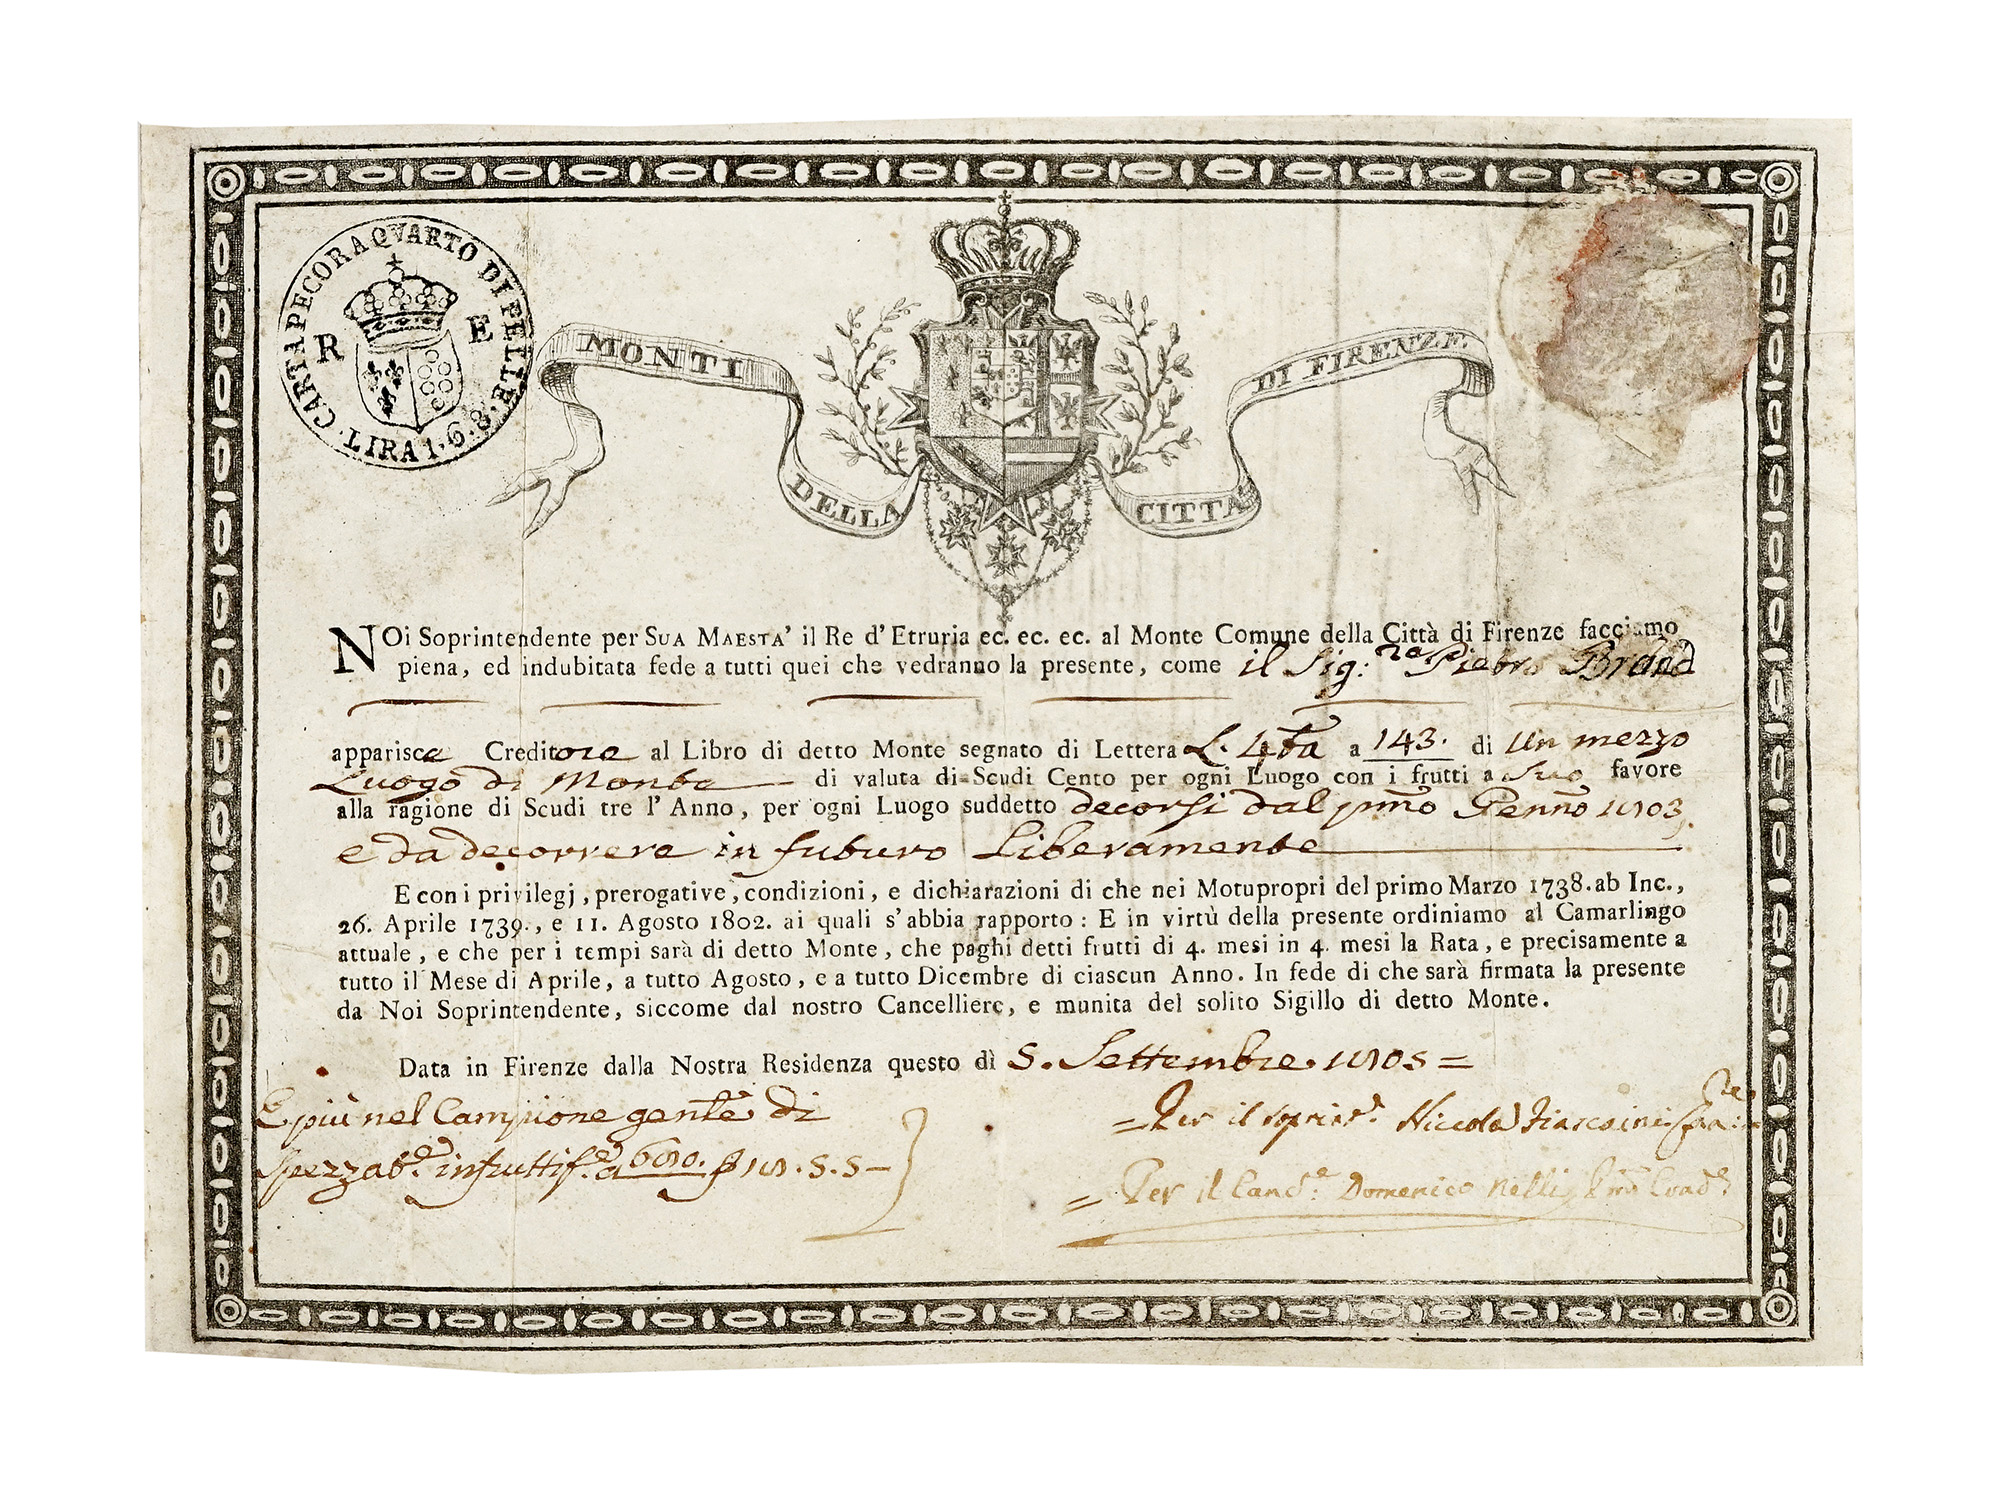 CARTAPECORA QVARTO DI PELLE. LIRA 1.6.8.
R E
MONTI DELLA CITTA DI FIRENZE
NOi Soprintendente per SUA MAESTA' il Re d'Etruria ec. ec. ec. al Monte Comune della Città di Firenze facciamo
piena, ed indubitata fede a tutti quei che vedranno la presente, come il Sig:ra Pietro
apparisca Creditore al Libro di detto Monte segnato di Lettera L. 4ta a 143. di Un mezzo
Luogo di Monte di valuta di Scudi Cento per ogni Luogo con i frutti a suo favore
alla ragione di Scudi tre l'Anno, per ogni Luogo suddetto decorsi dal pmo Genno 1803
e da decorrere in futuro Liberamente
E con i privilegj, prerogative, condizioni, e dichiarazioni di che nei Motupropri del primo Marzo 1738. ab Inc.,
26. Aprile 1739., e 11. Agosto 1802. ai quali s'abbia rapporto: E in virtù della presente ordiniamo al Camarlingo
attuale, e che per i tempi sarà di detto Monte, che paghi detti frutti di 4. mesi in 4. mesi la Rata, e precisamente a
tutto il Mese di Aprile, a tutto Agosto, e a tutto Dicembre di ciascun Anno. In fede di che sarà firmata la presente
da Noi Soprintendente, siccome dal nostro Cancelliere, e munita del solito Sigillo di detto Monte.
Data in Firenze dalla Nostra Residenza questo dì 5. Settembre 1805 =
E più nel Campione genle di
Spezzate infruttife a 680. 18.5.5 —
= Per il soprinte Niccola
= Per il Cance: Domenico Nelli